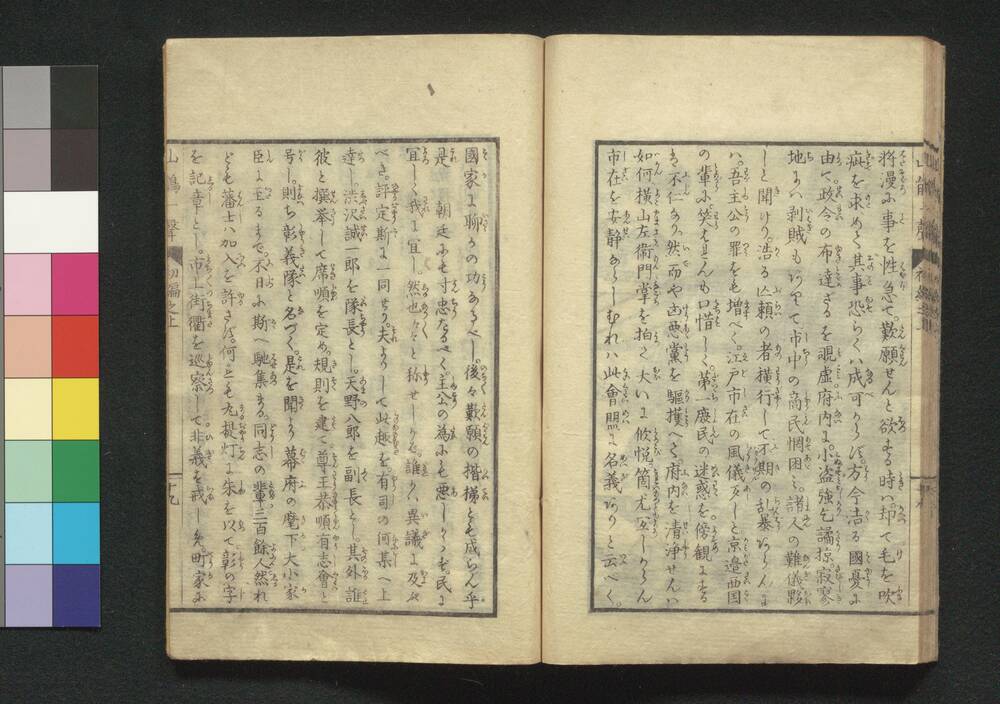 将漫に事を性急て歎願せんと欲する時ハ却て毛を吹
疵を求めて其事恐らくハ成可からず方今浩る國憂に
由て政令の布達ざるを覘虚府内に小盗強乞譎掠寂寥
地にハ剥賊もありて市中の商民悃困ミ諸人の難儀夥
しと聞けり浩る頼の者横行して不期の乱暴あらんに
ハ吾主公の罪をも増べく江戸市在の風儀歹しと京邉西国
の輩に笑ハせんも口惜し第一庶民の迷惑を傍観にする
き不仁なり然而や凶悪黨を驅攫へき府内を清浄せんハ
如何横山左衛門掌を拍て大いに悦箇尤宜しからん
市在を安静ならしむれハ此會盟に名義ありと云べく
國家に聊かの功あるべし後々歎願の楷梯とも成らん乎
是朝廷にも寸忠たるべく主公の為にも悪しからず民に
宜しく我に宜し然也々々と称せしかば誰か異議に及ん
べき評定斯に一同せり夫よりして此趣を有司の何某へ上
達し渋沢誠一郎を隊長とし天野八郎を副長とし其外誰
彼と撰挙して席順を定め規則を建て尊王恭順有志會と
号し則ち彰義隊と名づく是を聞より幕府の麾下大小家
臣に至るまで不日に斯へ馳集まる同志の輩三百餘人然れ
ども藩士ハ加入を許さず何にも丸提灯に朱を以て彰の字
を記章とし市上街衢を巡察して非義を戒しめ町家に
山鵑一聲
初編之上
十九